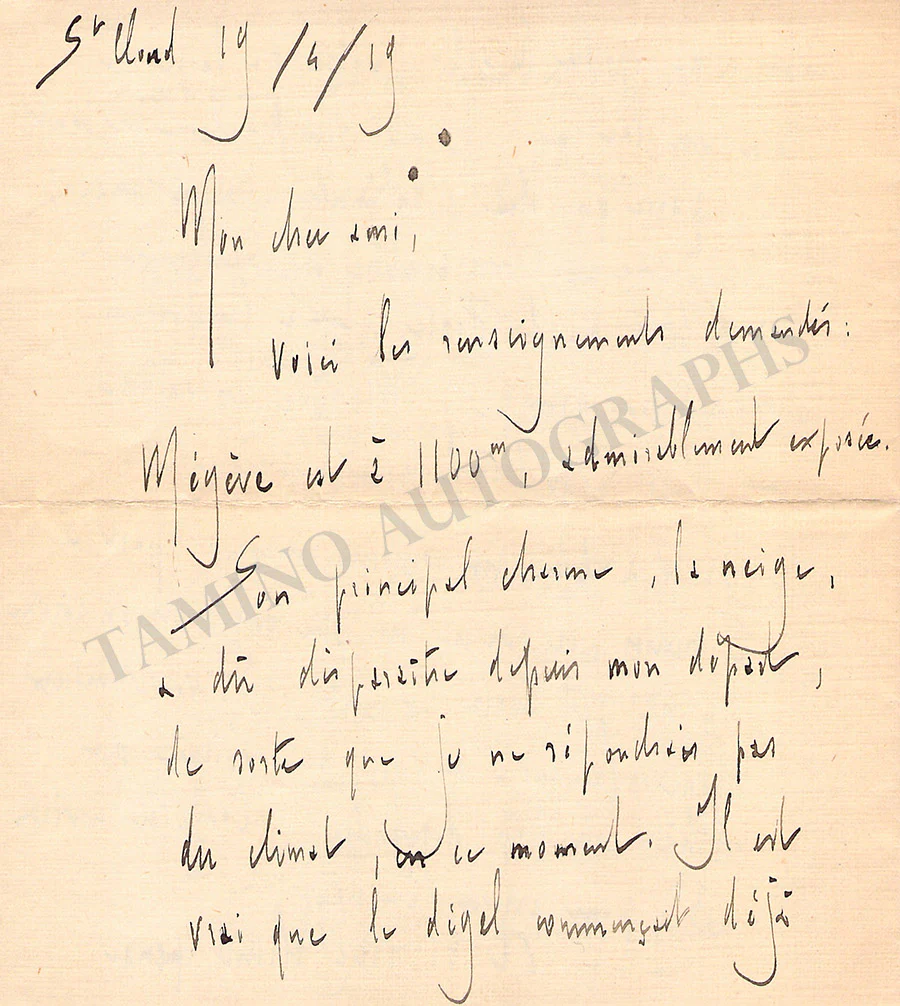 St Cloud 19/4/19
Mon cher ami,
Voici les renseignements demandés :
Mégève est à 1100m, admirablement exposée.
Son principal charme, la neige,
a dû disparaître depuis mon départ,
de sorte que je ne répondrais pas
du climat, en ce moment. Il est
vrai que le dégel commençait déjà
TAMINO AUTOGRAPHS